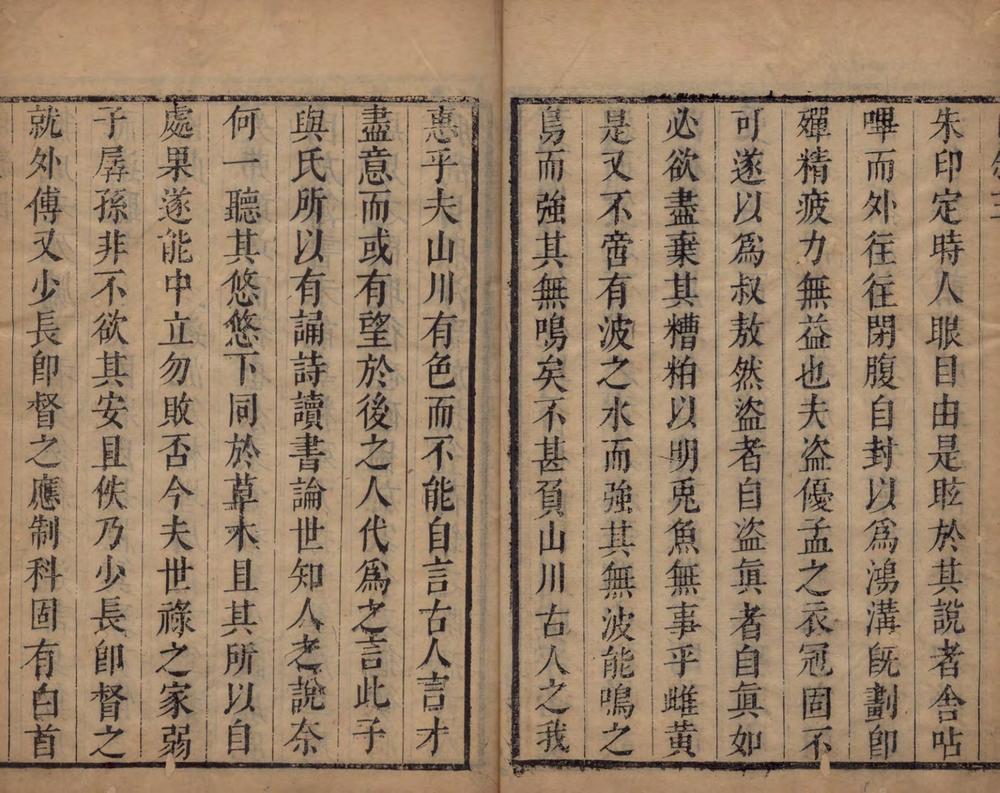 朱印定時人眼目由是眩於其說者舍呫
嗶而外往往閉腹自封以爲鴻溝旣劃卽
殫精疲力無益也夫盜優孟之衣冠固不
可遂以爲叔敖然盜者自盜眞者自眞如
必欲盡棄其糟粕以明兎魚無事乎雌黃
是又不啻有波之水而強其無波能鳴之
鳥而強其無鳴矣不甚負山川古人之我
惠乎夫山川有色而不能自言古人言才
盡意而或有望於後之人代爲之言此子
與氏所以有誦詩讀書論世知人之說奈
何一聽其悠悠下同於草木且其所以自
處果遂能中立勿敗否今夫世祿之家弱
子孱孫非不欲其安且佚乃少長卽督之
就外傅又少長卽督之應制科固有白首